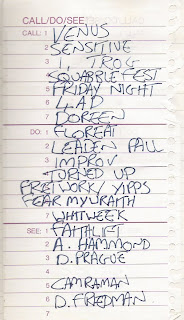 CALL/DO/SEE:
CALL: 1 VENUS
2 SENSITIVE
3 I, TROG
4 SQUABBLE FEST
5 FRIDAY NIGHT
6 LAD
7 DOREEN
DO: 1 FLOREAT
2 LEADEN PALL
3 IMPROV
4 TURNED UP
5 FRETWORK/YIPPS
6 FEAR MY WRAITH
7 WHATWEEK
SEE: 1 FAITHLIFT
2 A. HAMMOND
3 D. PRAGUE
4
5 CAMRAMAN
6 D. FREDMAN
7